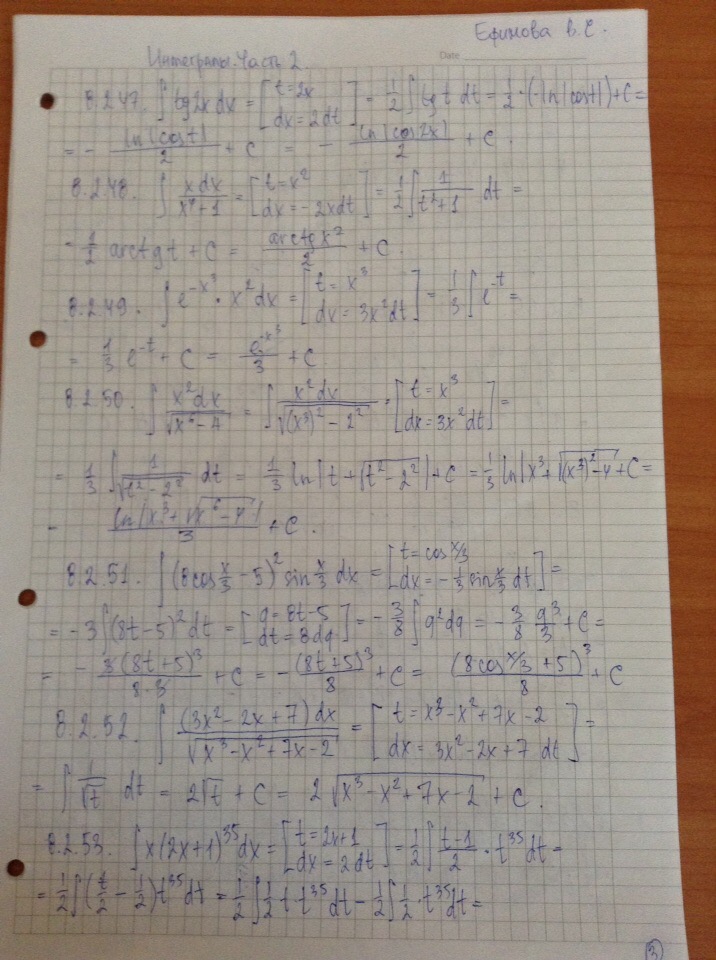 Ефимова В.С.
Интегралы. Часть 2.
Date
8.2.47. ∫ tg2x dx = [t = 2x; dx = 2dt] = 1/2 ∫ tg t dt = 1/2 · (-ln|cost|) + C =
= - ln|cost|/2 + C = - ln|cos2x|/2 + C.
8.2.48. ∫ xdx/(x⁴+1) = [t = x²; dx = -2xdt] = 1/2 ∫ 1/(t²+1) dt =
- 1/2 arctgt + C = arctgx²/2 + C.
8.2.49. ∫ e^(-x³) · x²dx = [t = x³; dx = 3x²dt] = 1/3 ∫ e^(-t) =
= 1/3 e^(-t) + C = e^(-x³)/3 + C.
8.2.50. ∫ x²dx/√(x⁶-4) = ∫ x²dx/√((x³)²-2²) = [t = x³; dx = 3x²dt] =
= 1/3 ∫ 1/√(t²-2²) dt = 1/3 ln|t+√(t²-2²)| + C = 1/3 ln|x³+√((x³)²-4) + C =
- ln|x³+√(x⁶-4)|/3 + C.
8.2.51. ∫ (8cos x/3 - 5)² sin x/3 dx = [t = cos x/3; dx = -1/3 sin x/3 dt] =
= -3∫(8t-5)²dt = [q = 8t-5; dt = 8dq] = -3/8 ∫ q²dq = -3/8 q³/3 + C =
= - 3(8t+5)³/(8·3) + C = - (8t+5)³/8 + C = (8cos x/3 + 5)³/8 + C
8.2.52. ∫ (3x²-2x+7)dx/√(x³-x²+7x-2) = [t = x³-x²+7x-2; dx = 3x²-2x+7 dt] =
= ∫ 1/√t dt = 2√t + C = 2√(x³-x²+7x-2) + C.
8.2.53. ∫ x(2x+1)³⁵dx = [t = 2x+1; dx = 2dt] = 1/2 ∫ (t-1)/2 · t³⁵dt =
= 1/2 ∫ (t/2 - 1/2) t³⁵dt = 1/2 ∫ 1/2 t·t³⁵dt - 1/2 ∫ 1/2 · t³⁵dt =
3